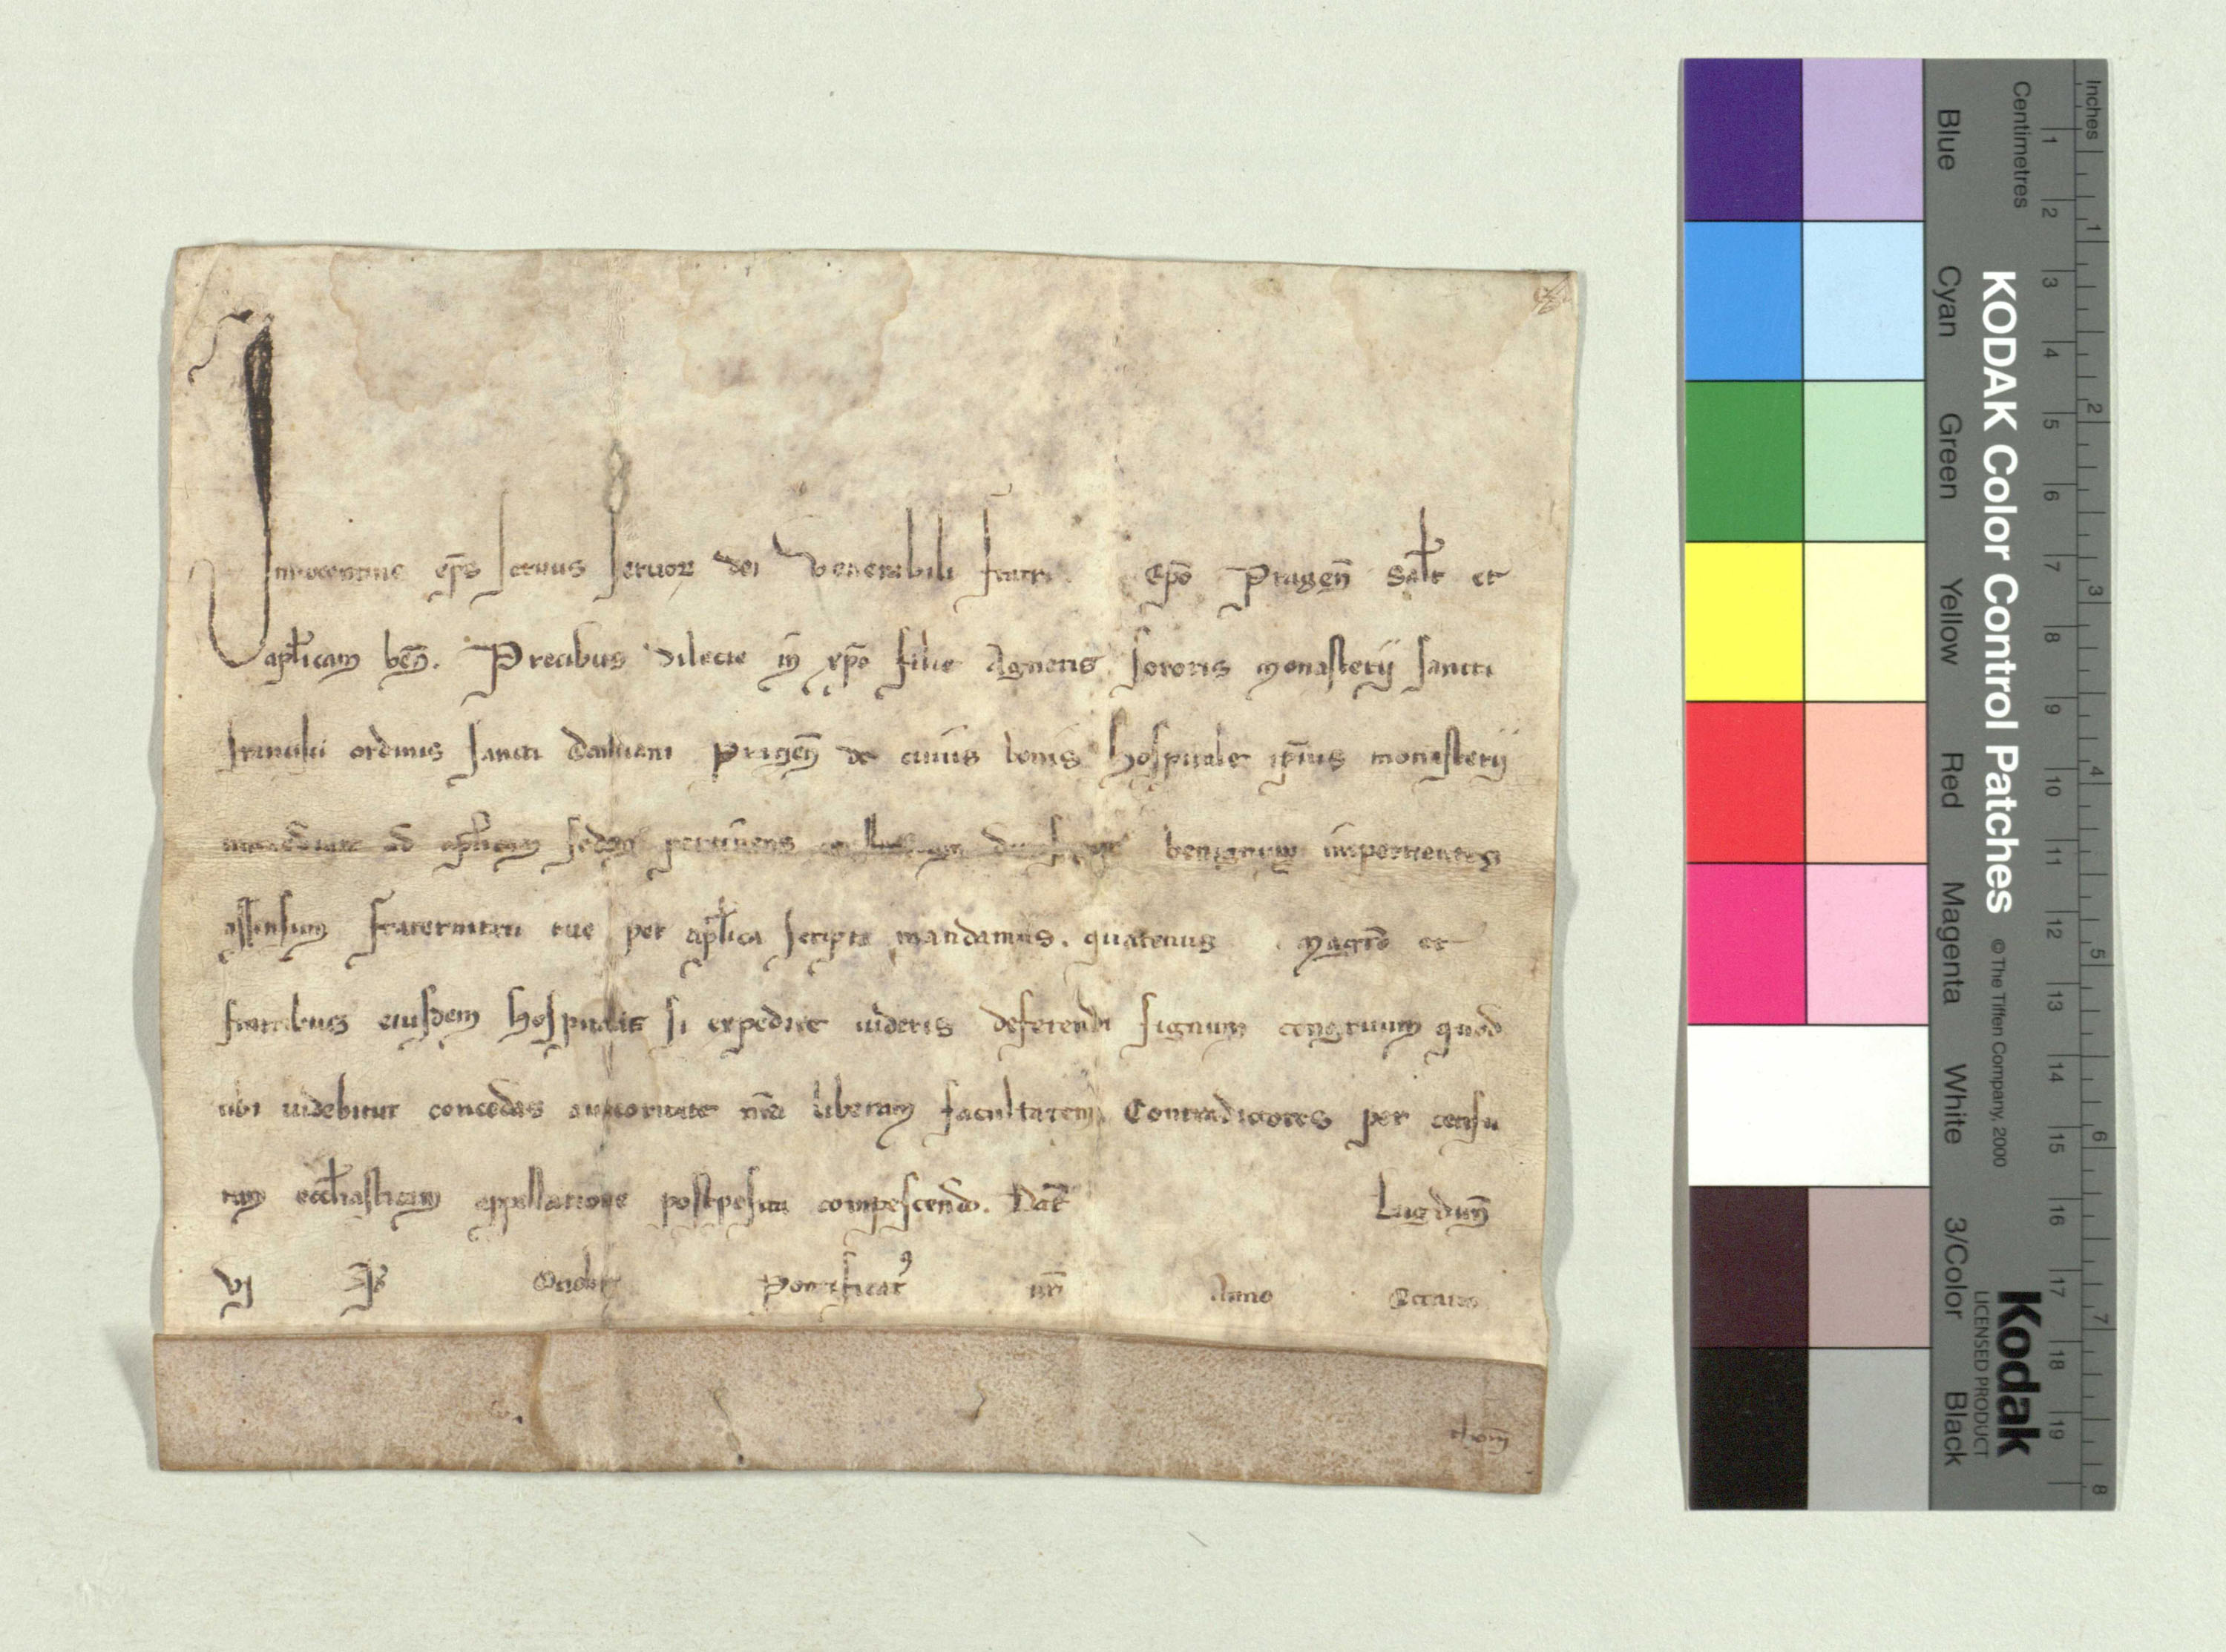 Innocentius ep̅s seruus seruoꝝ dei Venerabili fratri . ep̅o Pragen̅ salt̅ et
apl̅icam ben̅. Precibus dilecte in xp̅o filie Agnetis sororis monasterij sancti
francisci ordinis sancti Damiani Pragen̅ de cuius bonis hospitale ip̅ius monasterij
ad apl̅icam sedem pertinens benignum impertientes
assensum fraternitati tue per apl̅ica scripta mandamus. quatenus . magr̅o et
fratribus eiusdem hospitalis si expedire uideris deferendi signum congruum quod
tibi uidebitur concedas auctoritate nr̅a liberam facultatem. Contradictores per censu
ram eccl̅iasticam appellatione postposita compescendo. Dat̅ Lugdun̅
Vj Octobr̅ Pontificatꝰ nr̅i Anno Octauo
Inches
Centimetres
1 2 3 4 5 6 7 8 9 10 11 12 13 14 15 16 17 18 19
1 2 3 4 5 6 7 8
KODAK Color Control Patches © The Tiffen Company, 2000
Kodak
LICENSED PRODUCT
Blue Cyan Green Yellow Red Magenta White 3/Color Black